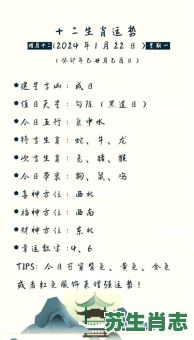 十二生肖运势
腊月十二(2024年1月22日)星期一
(癸卯年乙丑月己酉日)
建星吉凶:成日
值日天星:勾陈(黑道日)
今日五行:泉中水
特吉生肖:蛇、牛、龙
次吉生肖:兔、猪、猴
今日带衰:狗、鼠、鸡
喜神方位:西北
福神方位:西南
财神方位:东北
幸运数字:4、6
TIPS:今日可穿紫色、黄色、金色
或者红色服饰来增强运势!
苏生肖志